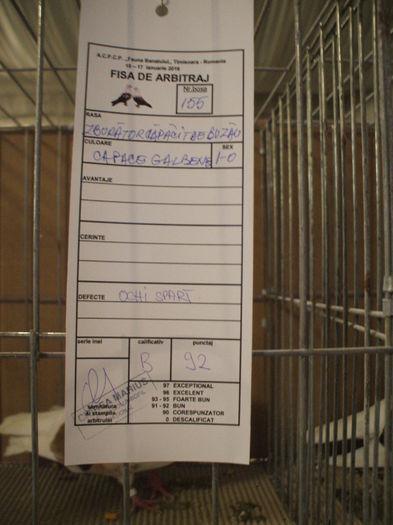 A.C.P.C.P. „Fauna Banatului„ Timisoara - Romania
15 - 17 Ianuarie 2016
FISA DE ARBITRAJ
Nr.boxa
155
RASA
ZBURĂTOR CĂPĂCIT DE BUZĂU
CULOARE
SEX
CAPACE GALBENE
1-0
AVANTAJE
CERINTE
DEFECTE OCHI SPART
serie inel
calificativ
punctaj
B
92
MARIUS
semnatura
si stampila
arbitrului
97 EXCEPTIONAL
96 EXCELENT
93 - 95 FOARTE BUN
91 - 92 BUN
90 CORESPUNZATOR
0 DESCALIFICAT